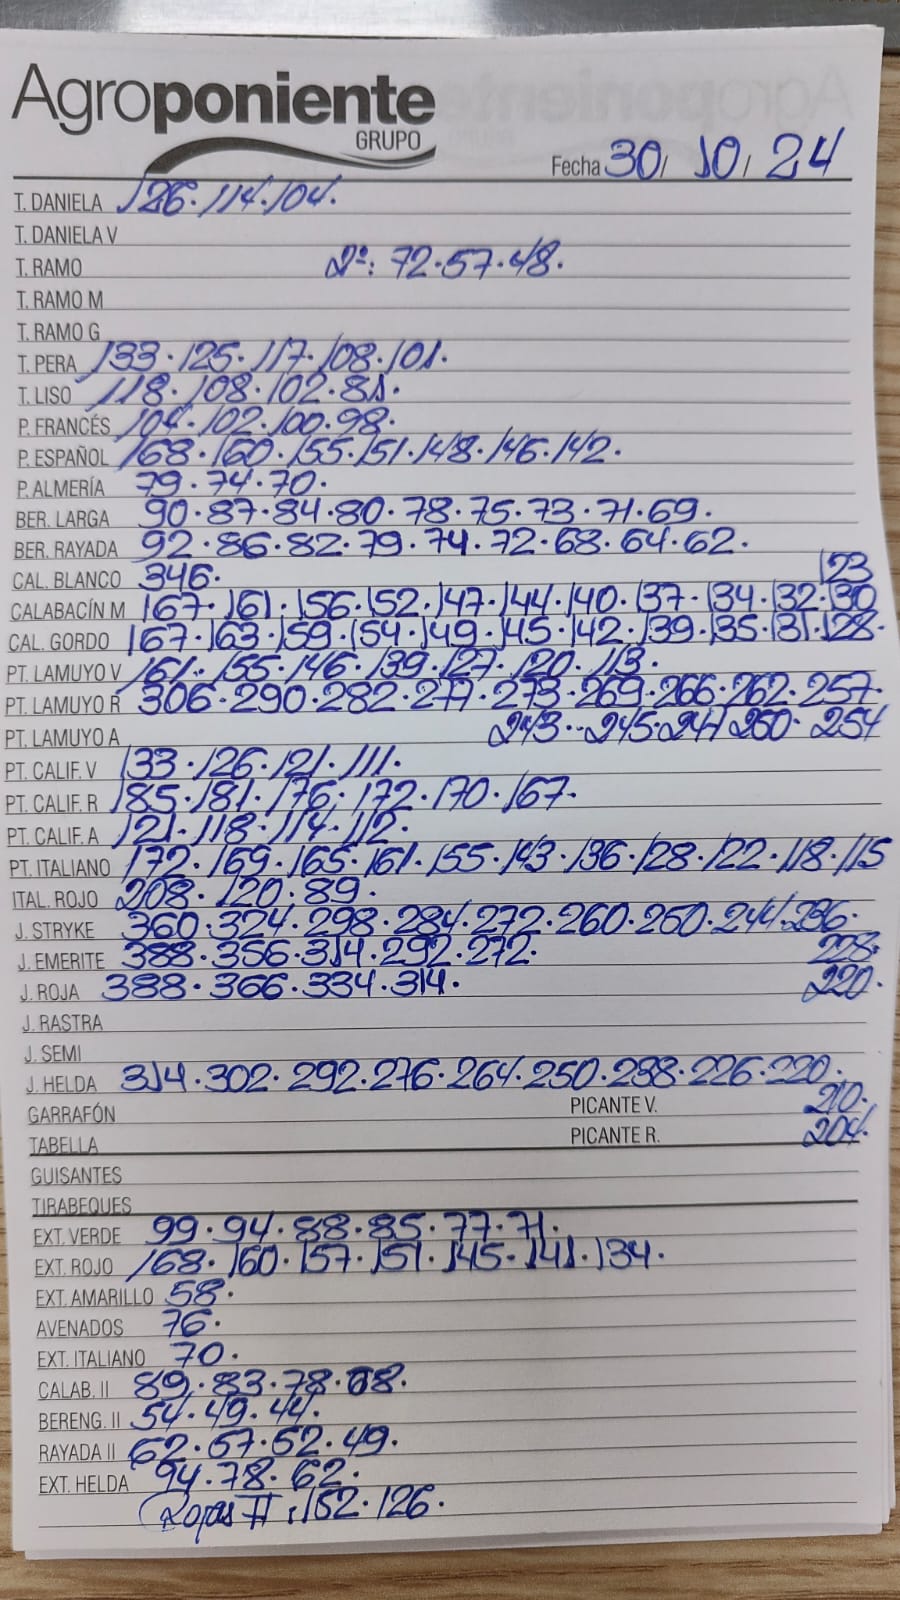 Agroponiente
GRUPO
Fecha 30/ 10/ 24
T. DANIELA 126. 114. 104.
T. DANIELA V
T. RAMO 2ª: 72. 57. 48.
T. RAMO M
T. RAMO G
T. PERA 133. 125. 117. 108. 101.
T. LISO 118. 108. 102. 81.
P. FRANCÉS 104. 102. 100. 98.
P. ESPAÑOL 168. 160. 155. 151. 148. 146. 142.
P. ALMERÍA 79. 74. 70.
BER. LARGA 90. 87. 84. 80. 78. 75. 73. 71. 69.
BER. RAYADA 92. 86. 82. 79. 74. 72. 68. 64. 62.
CAL. BLANCO 346. 123
CALABACÍN M 167. 161. 156. 152. 147. 144. 140. 137. 134. 132. 130
CAL. GORDO 167. 163. 159. 154. 149. 145. 142. 139. 135. 131. 128.
PT. LAMUYO V 161. 155. 146. 139. 127. 120. 113.
PT. LAMUYO R 306. 290. 282. 277. 273. 269. 266. 262. 257.
PT. LAMUYO A 243. 245. 247 250. 254
PT. CALIF. V 133. 126. 121. 111.
PT. CALIF. R 185. 181. 176. 172. 170. 167.
PT. CALIF. A 121. 118. 114. 112.
PT. ITALIANO 172. 169. 165. 161. 155. 143. 136. 128. 122. 118. 115
ITAL. ROJO 208. 120. 89.
J. STRYKE 360. 324. 298. 284. 272. 260. 250. 244. 236.
J. EMERITE 388. 356. 314. 292. 272. 228.
J. ROJA 388. 366. 334. 314. 220.
J. RASTRA
J. SEMI
J. HELDA 314. 302. 292. 276. 264. 250. 238. 226. 220.
GARRAFÓN PICANTE V. 210.
TABELLA PICANTE R. 204.
GUISANTES
TIRABEQUES
EXT. VERDE 99. 94. 88. 85. 77. 71.
EXT. ROJO 168. 160. 157. 151. 145. 141. 134.
EXT. AMARILLO 58.
AVENADOS 76.
EXT. ITALIANO 70.
CALAB. II 89. 83. 78. 68.
BERENG. II 54. 49. 44.
RAYADA II 62. 57. 52. 49.
EXT. HELDA 94. 78. 62.
Rojas II: 152. 126.